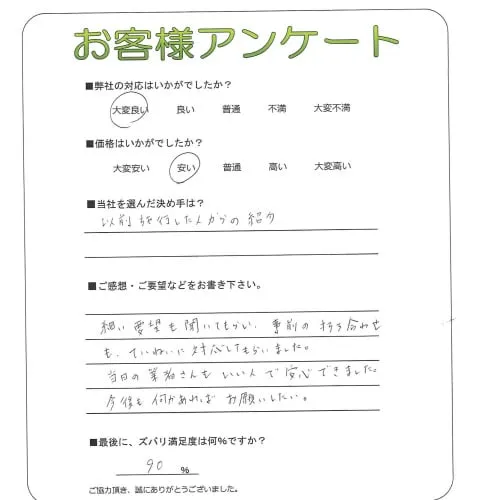 お客様アンケート
■弊社の対応はいかがでしたか？
大変良い 良い 普通 不満 大変不満
■価格はいかがでしたか？
大変安い 安い 普通 高い 大変高い
■当社を選んだ決め手は？
以前 施行した人からの紹介
■ご感想・ご要望などをお書き下さい。
細い要望も聞いてもらい、事前の打ち合わせ
も、ていねいに対応してもらいました。
当日の業者さんもいい人で安心できました。
今後も何かあれば お願いしたい。
■最後に、ズバリ満足度は何％ですか？
90 ％
ご協力頂き、誠にありがとうございました。